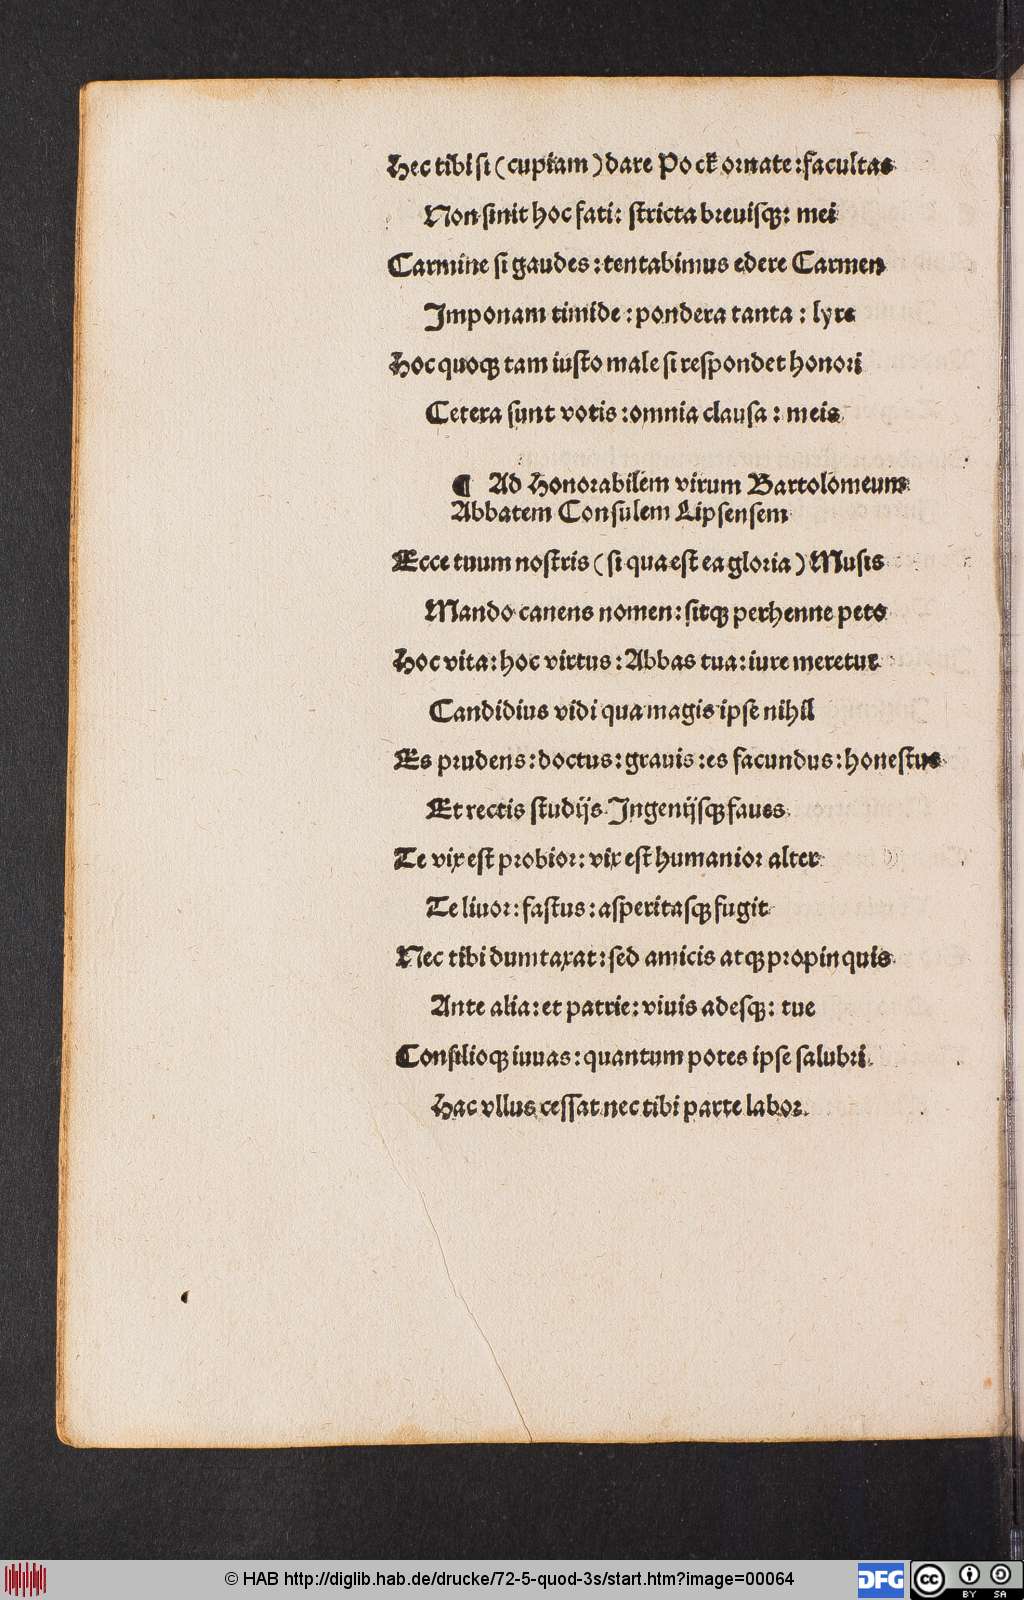 Hec tibi si (cupiam) dare Pock ornate: facultas
Non sinit hoc fati: stricta breuisqȝ: mei
Carmine si gaudes: tentabimus edere Carmen
Imponam timide: pondera tanta: lyre
Hoc quoqȝ tam iusto male si respondet honori
Cetera sunt votis: omnia clausa: meis
¶ Ad Honorabilem virum Bartolomeum
Abbatem Consulem Lipsensem
Ecce tuum nostris (si qua est ea gloria) Musis
Mando canens nomen: sitqȝ perhenne peto
Hoc vita: hoc virtus: Abbas tua: iure meretur
Candidius vidi qua magis ipse nihil
Es prudens: doctus: grauis: es facundus: honestus
Et rectis studijs Ingenijsqȝ faues
Te vix est probior: vix est humanior alter
Te liuor: fastus: asperitasqȝ fugit
Nec tibi dumtaxat: sed amicis atqȝ propinquis
Ante alia: et patrie: viuis adesqȝ: tue
Consilioqȝ iuuas: quantum potes ipse salubri
Hac vllus cessat nec tibi parte labor.
© HAB http://diglib.hab.de/drucke/72-5-quod-3s/start.htm?image=00064
DFG
cc BY SA